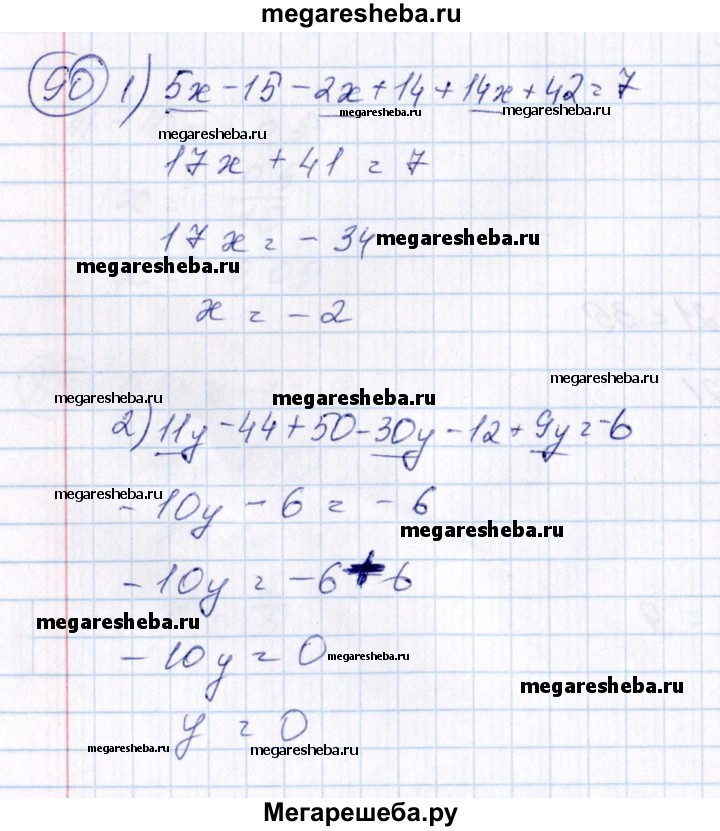 megaresheba.ru
90 1) 5x - 15 - 2x + 14 + 14x + 42 = 7
megaresheba.ru megaresheba.ru megaresheba.ru
17x + 41 = 7
17x = - 34 megaresheba.ru
megaresheba.ru
x = - 2
megaresheba.ru
megaresheba.ru megaresheba.ru
2) 11y - 44 + 50 - 30y - 12 + 9y = -6
megaresheba.ru
- 10y - 6 = - 6
megaresheba.ru
- 10y = -6 + 6
megaresheba.ru
- 10y = 0 megaresheba.ru
megaresheba.ru
y = 0
megaresheba.ru megaresheba.ru
Мегарешеба.ру